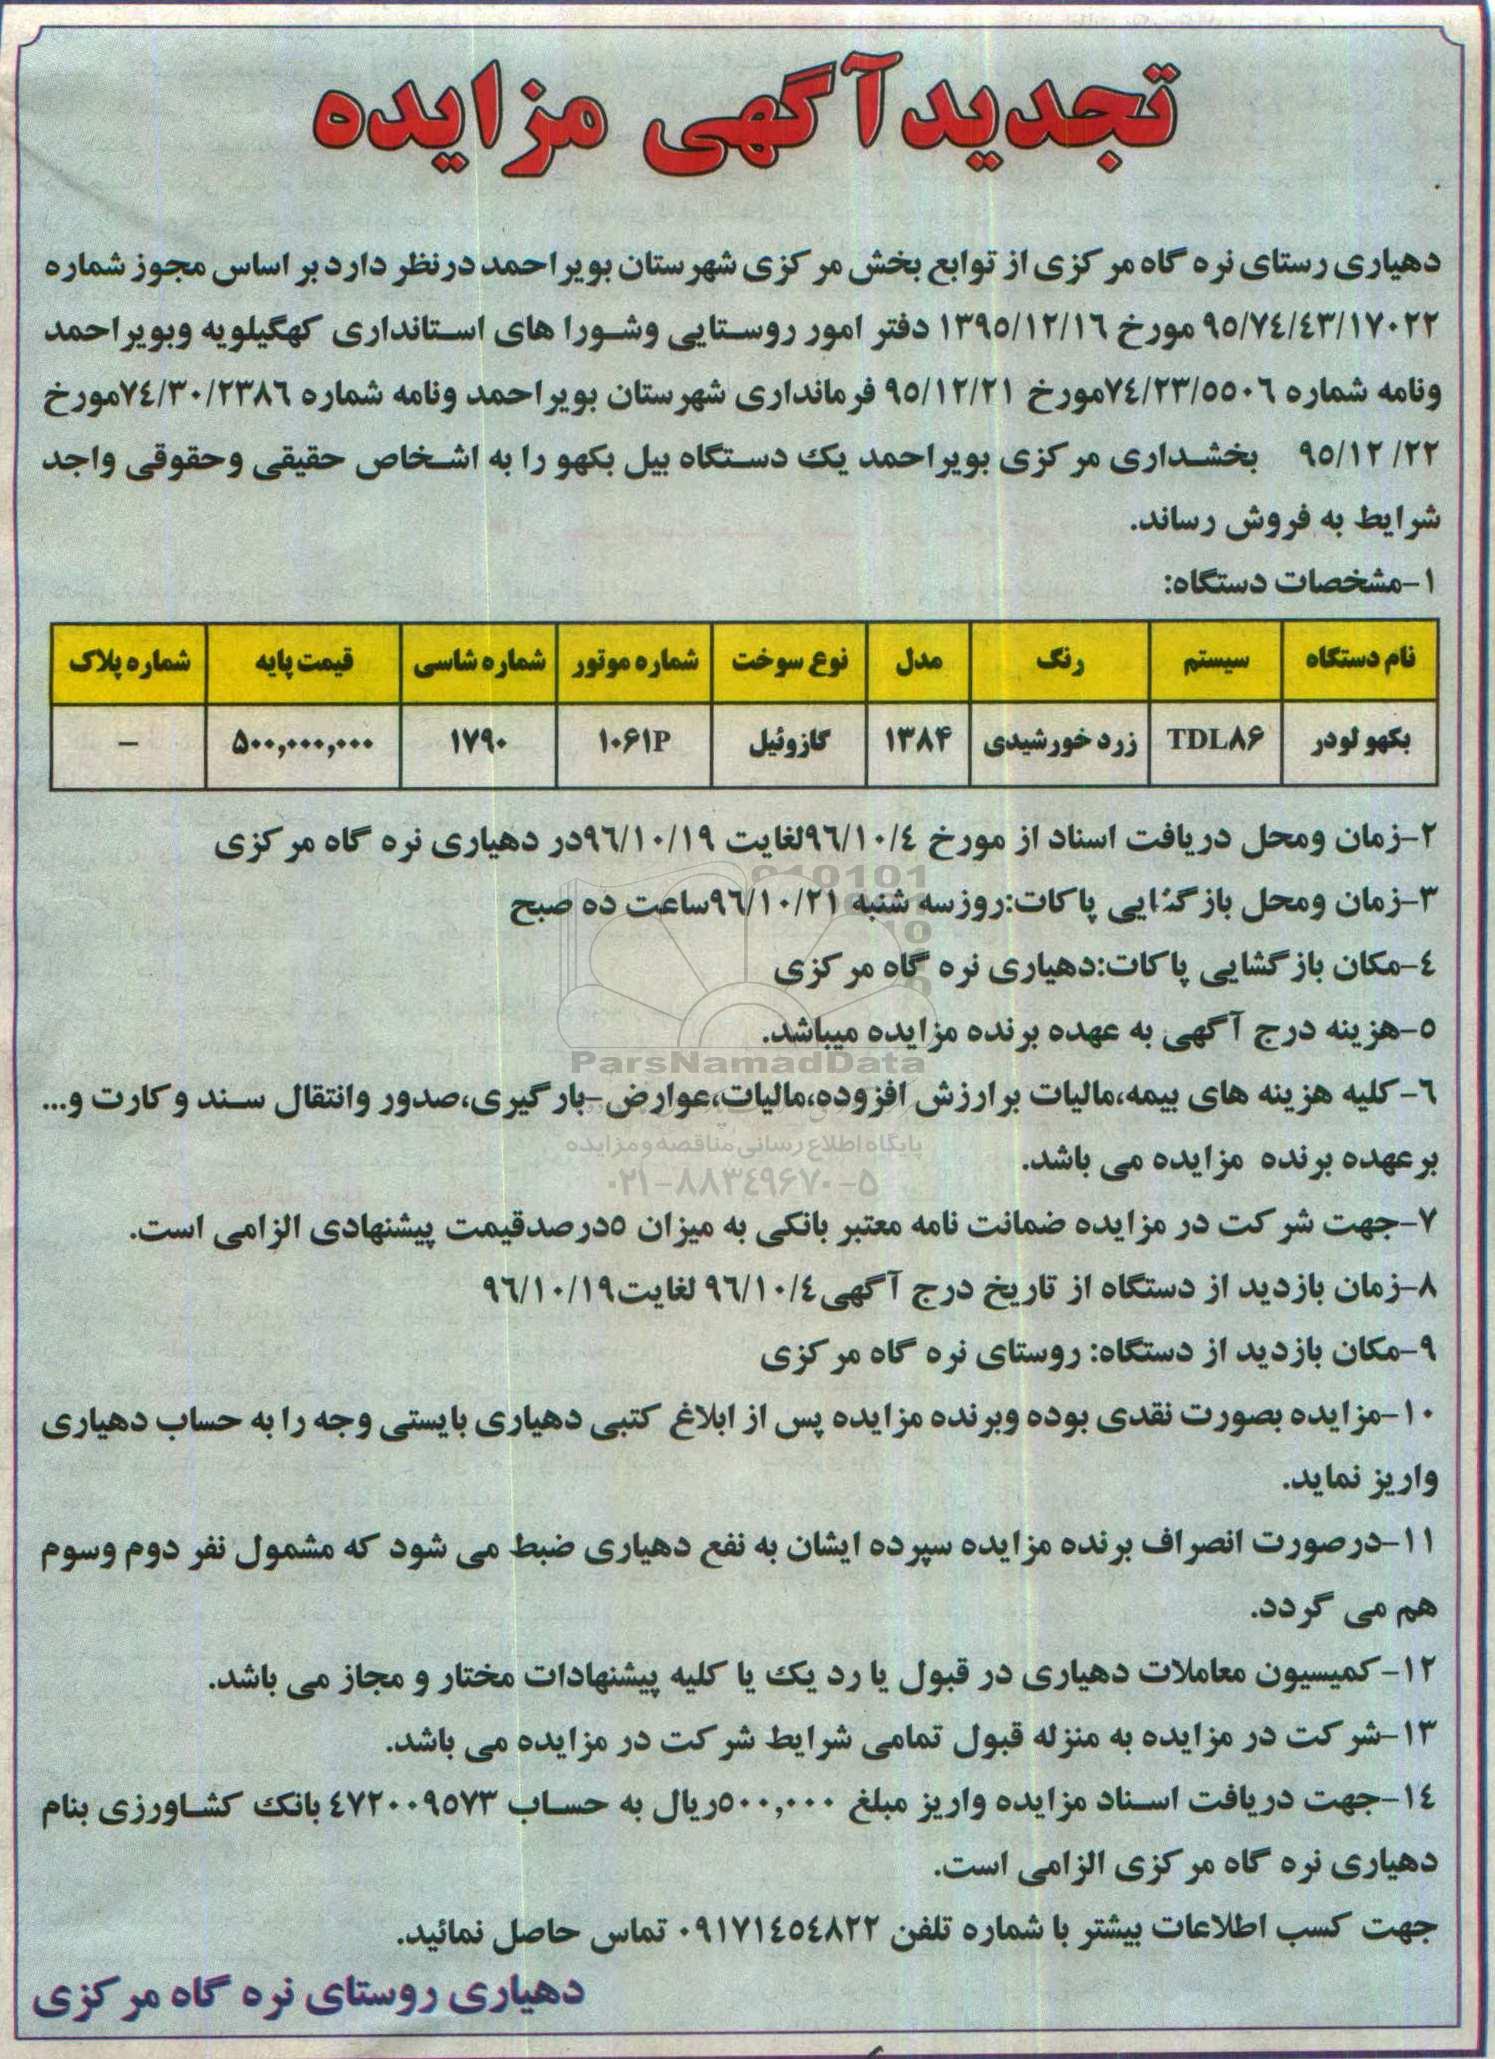 تجدیدآگهی مزایده
دهیاری رستای نره گاه مرکزی از توابع بخش مرکزی شهرستان بویراحمد درنظر دارد بر اساس مجوز شماره
۹۵/۷٤/٤۳/۱۷۰۲۲ مورخ ۱۳۹۵/۱۲/۱٦ دفتر امور روستایی وشورا های استانداری کهگیلویه وبویراحمد
ونامه شماره ۷٤/۲۳/۵۵۰٦مورخ ۹۵/۱۲/۲۱ فرمانداری شهرستان بویراحمد ونامه شماره ۷٤/۳۰/۲۳۸٦مورخ
۹۵/۱۲ /۲۲ بخشداری مرکزی بویراحمد یک دستگاه بیل بکهو را به اشخاص حقیقی وحقوقی واجد
شرایط به فروش رساند.
۱-مشخصات دستگاه:
نام دستگاه سیستم رنگ مدل نوع سوخت شماره موتور شماره شاسی قیمت پایه شماره پلاک
بکهو لودر TDL۸۶ زرد خورشیدی ۱۳۸۴ گازوئیل ۱۰۶۱P ۱۷۹۰ ۵۰۰,۰۰۰,۰۰۰ –
۲-زمان ومحل دریافت اسناد از مورخ ۹٦/۱۰/٤لغایت ۹٦/۱۰/۱۹در دهیاری نره گاه مرکزی
۳-زمان ومحل بازگشایی پاکات:روزسه شنبه ۹٦/۱۰/۲۱ساعت ده صبح
٤-مکان بازگشایی پاکات:دهیاری نره گاه مرکزی
۵-هزینه درج آگهی به عهده برنده مزایده میباشد.
ParsNamadData
٦-کلیه هزینه های بیمه،مالیات برارزش افزوده،مالیات،عوارض-بارگیری،صدور وانتقال سند و کارت و...
پایگاه اطلاع رسانی مناقصه و مزایده
برعهده برنده مزایده می باشد.
۰۲۱-۸۸۳۴۹۶۷۰-۵
۷-جهت شرکت در مزایده ضمانت نامه معتبر بانکی به میزان ۵درصدقیمت پیشنهادی الزامی است.
۸-زمان بازدید از دستگاه از تاریخ درج آگهی۹٦/۱۰/٤ لغایت۹٦/۱۰/۱۹
۹-مکان بازدید از دستگاه: روستای نره گاه مرکزی
۱۰-مزایده بصورت نقدی بوده وبرنده مزایده پس از ابلاغ کتبی دهیاری بایستی وجه را به حساب دهیاری
واریز نماید.
۱۱-درصورت انصراف برنده مزایده سپرده ایشان به نفع دهیاری ضبط می شود که مشمول نفر دوم وسوم
هم می گردد.
۱۲-کمیسیون معاملات دهیاری در قبول یا رد یک یا کلیه پیشنهادات مختار و مجاز می باشد.
۱۳-شرکت در مزایده به منزله قبول تمامی شرایط شرکت در مزایده می باشد.
۱٤-جهت دریافت اسناد مزایده واریز مبلغ ۵۰۰,۰۰۰ریال به حساب ٤۷۲۰۰۹۵۷۳ بانک کشاورزی بنام
دهیاری نره گاه مرکزی الزامی است.
جهت کسب اطلاعات بیشتر با شماره تلفن ۰۹۱۷۱٤۵٤۸۲۲ تماس حاصل نمائید.
دهیاری روستای نره گاه مرکزی